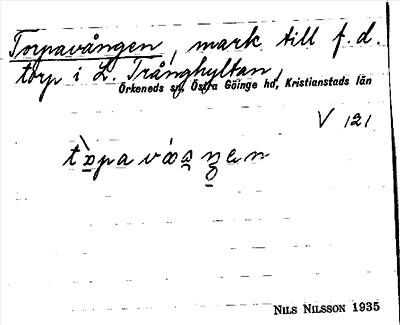 Torpavången, mark till f. d.
torp i L. Trånghyltan,
Örkeneds sn, Östra Göinge hd, Kristianstads län
V 121
NILS NILSSON 1935